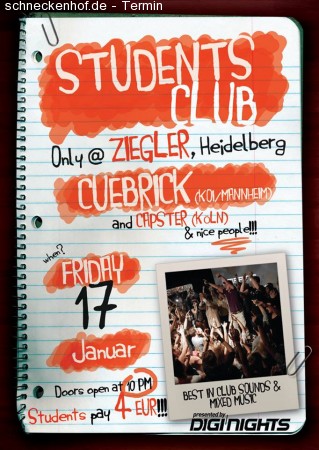 schneckenhof.de - Termin
STUDENTS
CLUB
Only @ ZIEGLER, Heidelberg
CUEBRICK (KOI/MANNHEIM)
and CAPSTER (KöLN)
& nice people!!!
when?
FRIDAY
17
Januar
Doors open at 10 PM
Students pay 4 EUR!!!
BEST IN CLUB SOUNDS &
MIXED MUSIC
presented by
DIGI'NIGHTS